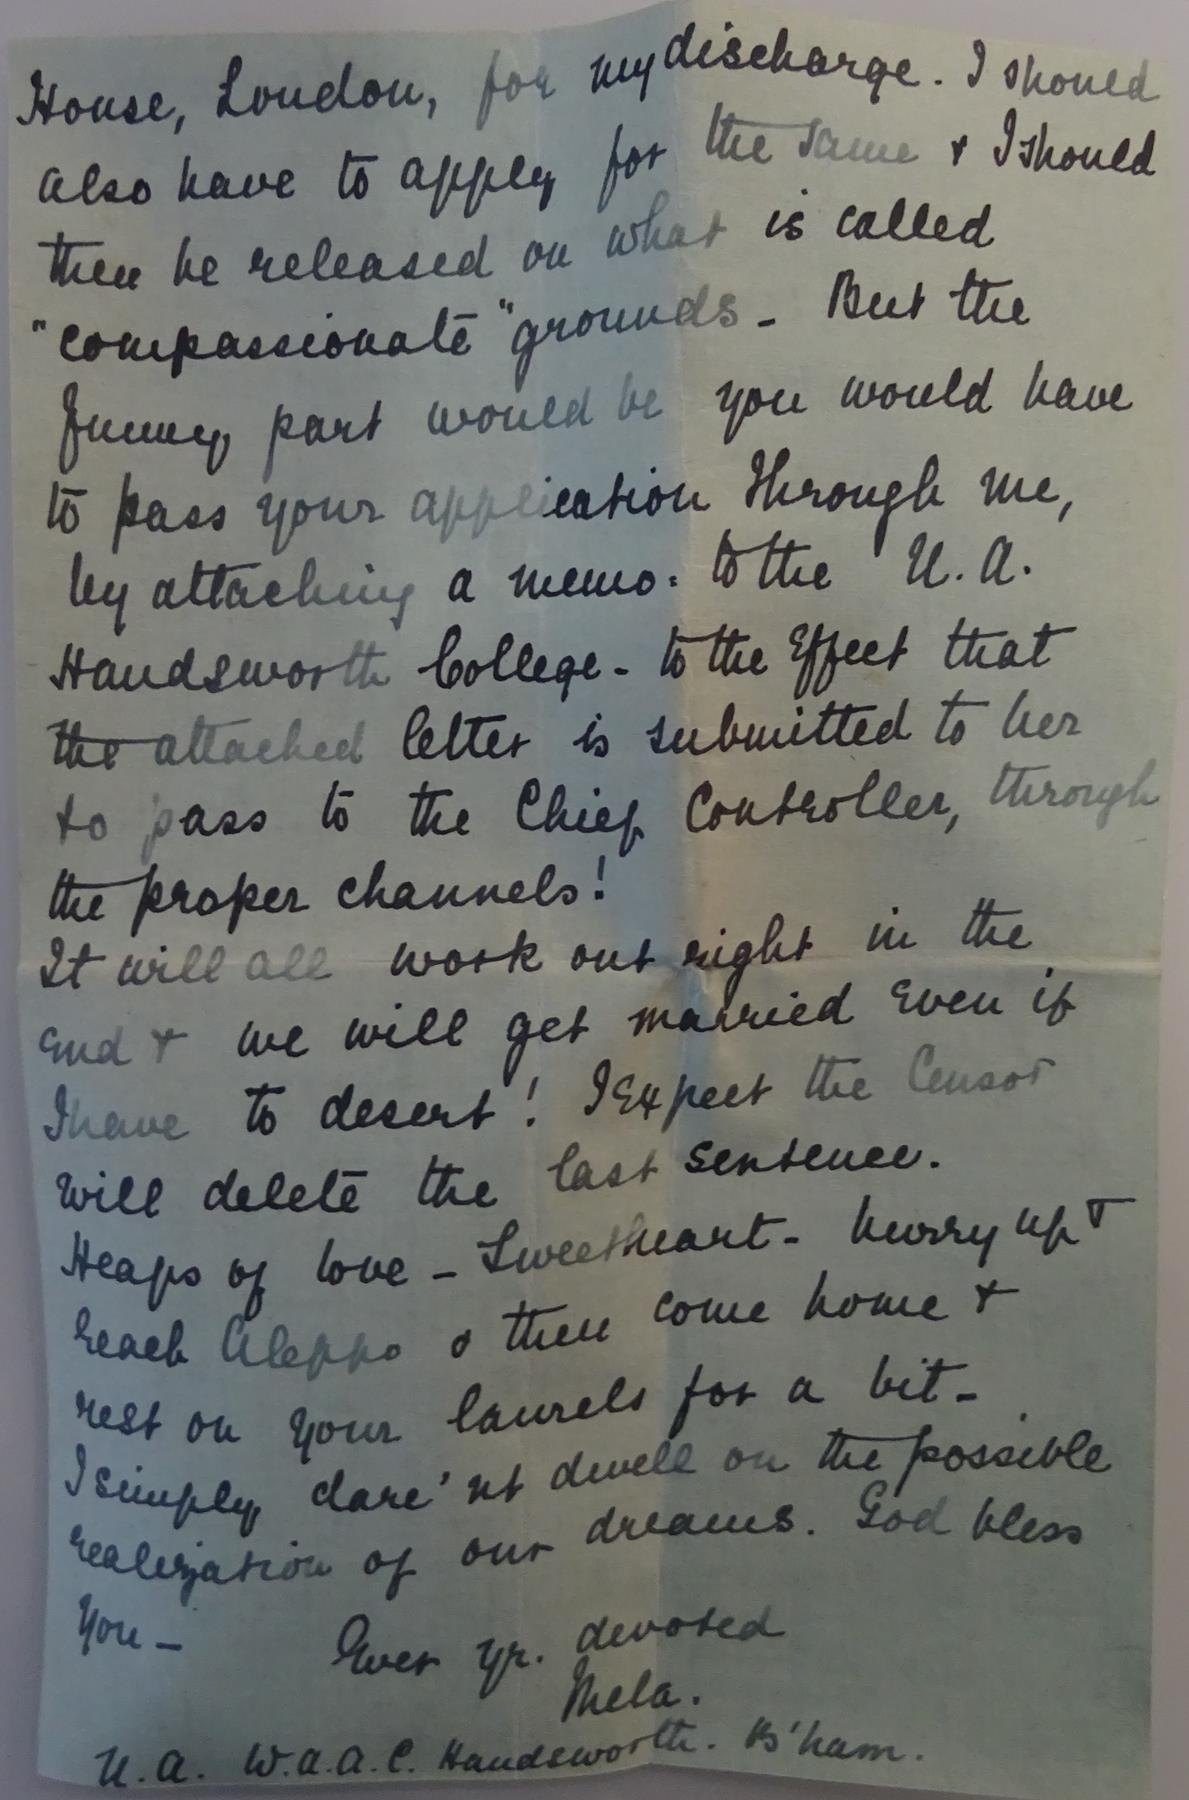 House, London, for my discharge. I should
also have to apply for the same & I should
then be released on what is called
"compassionate" grounds - But the
funny part would be you would have
to pass your application through me,
by attaching a memo. to the U.A.
Handsworth College - to the effect that
the attached letter is submitted to her
to pass to the Chief Controller, through
the proper channels!
It will all work out right in the
end & we will get married even if
I have to desert! I expect the Censor
will delete the last sentence.
Heaps of love - Sweetheart - hurry up &
reach Aleppo & then come home &
rest on your laurels for a bit -
I simply dare'nt dwell on the possible
realization of our dreams. God bless
you -
Ever yr. devoted
Thela.
U.A. W.A.A.C. Handsworth. B'ham.